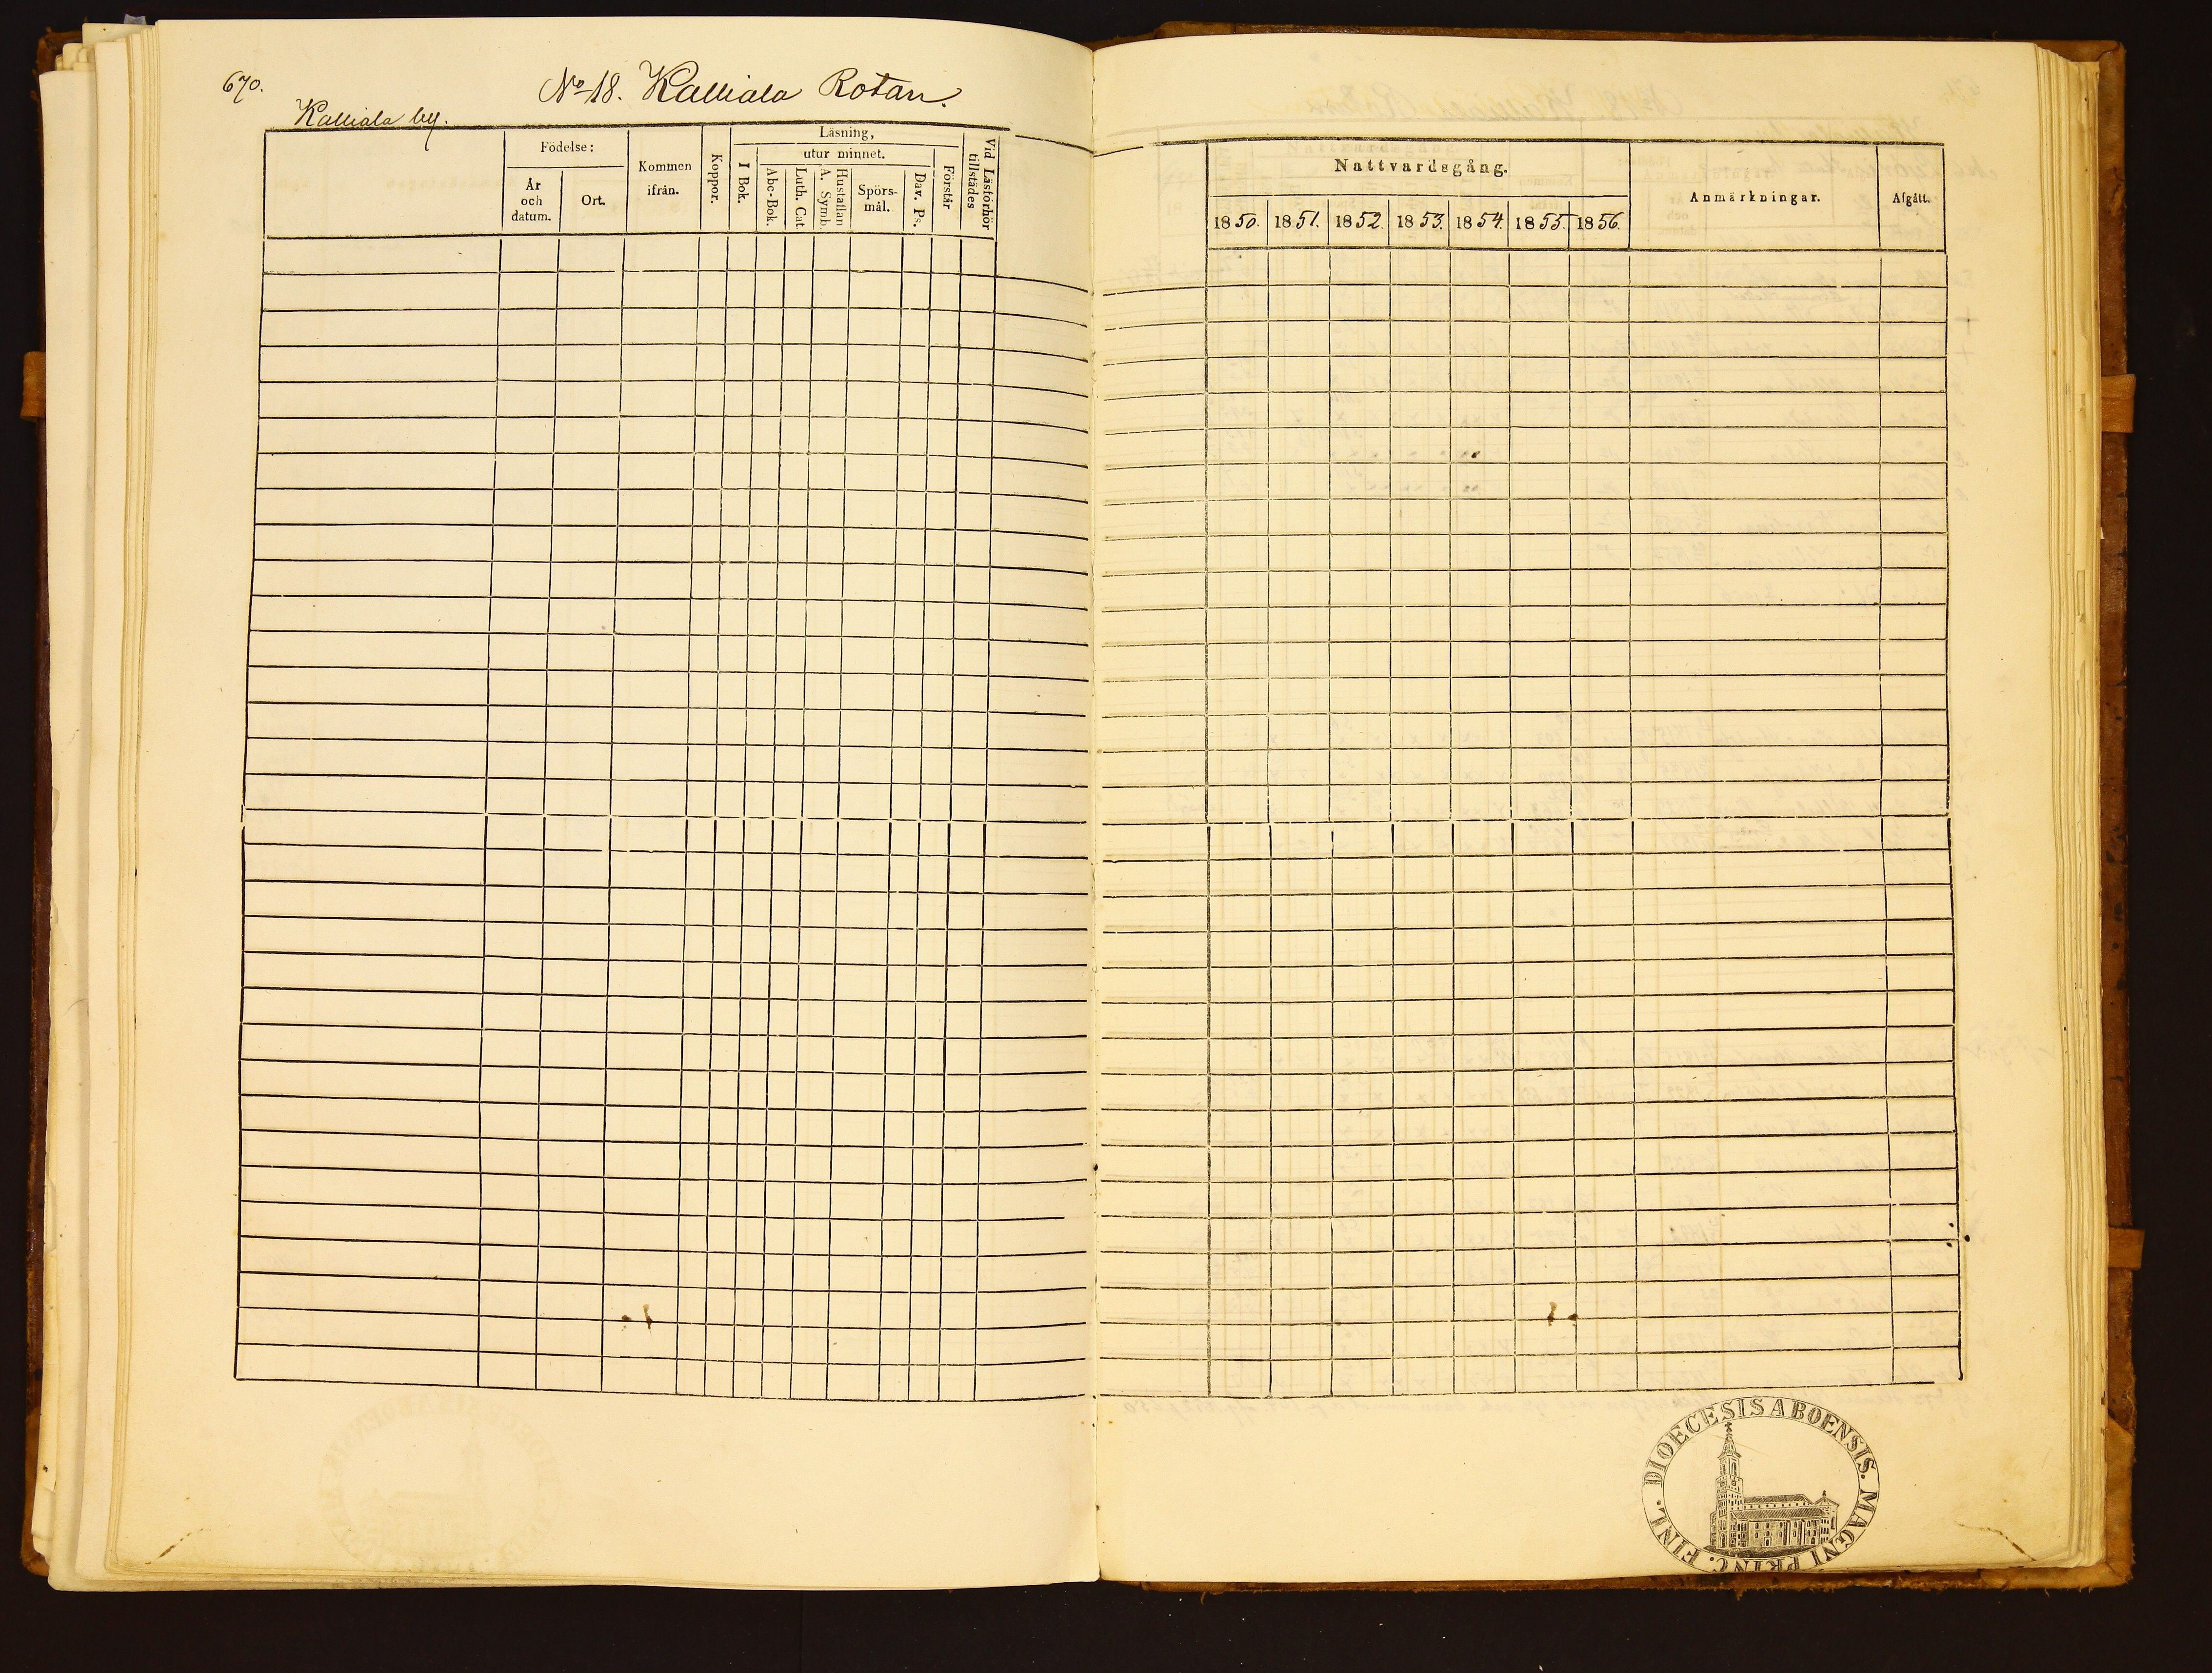 670.
No 18. Kalliala Rotan.
Kalliala by.
Födelse:
År och datum.
Ort.
Kommen ifrån.
Koppor.
Läsning,
I Bok.
utur minnet.
Abc-Bok.
Luth. Cat.
Hustaflan A. Symb.
Spörs-mål.
Dav. Ps.
Förstår
Vid Läsförhör tillstädes
Nattvardsgång.
1850. 1851. 1852. 1853. 1854. 1855. 1856.
Anmärkningar.
Afgått.
DIOECESIS ABOENSIS. MAGNI PRINC. FINL.